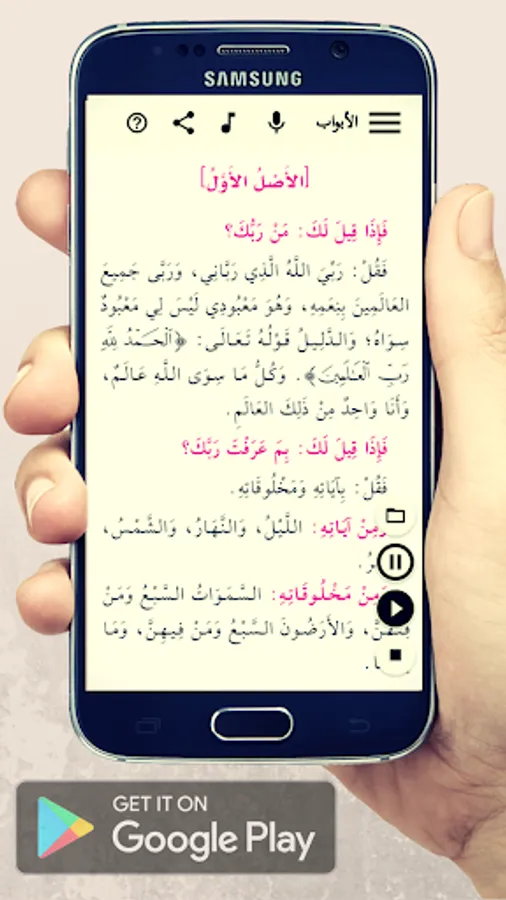 SAMSUNG
الأبواب
[الأَصْلُ الأَوَّلُ]
فَإِذَا قِيلَ لَكَ: مَنْ رَبُّكَ؟
فَقُلْ: رَبِّيَ اللَّهُ الَّذِي رَبَّانِي، وَرَبَّى جَمِيعَ
العَالَمِينَ بِنِعَمِهِ، وَهُوَ مَعْبُودِي لَيْسَ لِي مَعْبُودٌ
سِوَاهُ؛ وَالدَّلِيلُ قَوْلُهُ تَعَالَى: ﴿ٱلْحَمْدُ لِلَّهِ
رَبِّ ٱلْعَٰلَمِينَ﴾. وَكُلُّ مَا سِوَى اللَّهِ عَالَمٌ،
وَأَنَا وَاحِدٌ مِنْ ذَلِكَ العَالَمِ.
فَإِذَا قِيلَ لَكَ: بِمَ عَرَفْتَ رَبَّكَ؟
فَقُلْ: بِآيَاتِهِ وَمَخْلُوقَاتِهِ.
وَمِنْ آيَاتِهِ: اللَّيْلُ، وَالنَّهَارُ، وَالشَّمْسُ،
وَمِنْ مَخْلُوقَاتِهِ: السَّمَوَاتُ السَّبْعُ وَمَنْ
فِيهِنَّ، وَالأَرَضُونَ السَّبْعُ وَمَنْ فِيهِنَّ، وَمَا
GET IT ON
Google Play